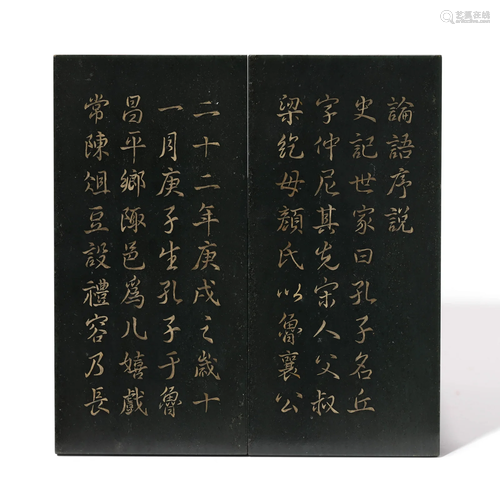 論語序説
史記世家曰孔子名丘
字仲尼其先宋人父叔
梁紇母顔氏以魯襄公
二十二年庚戌之歲十
一月庚子生孔子于魯
昌平鄉陬邑爲兒嬉戲
常陳俎豆設禮容乃長